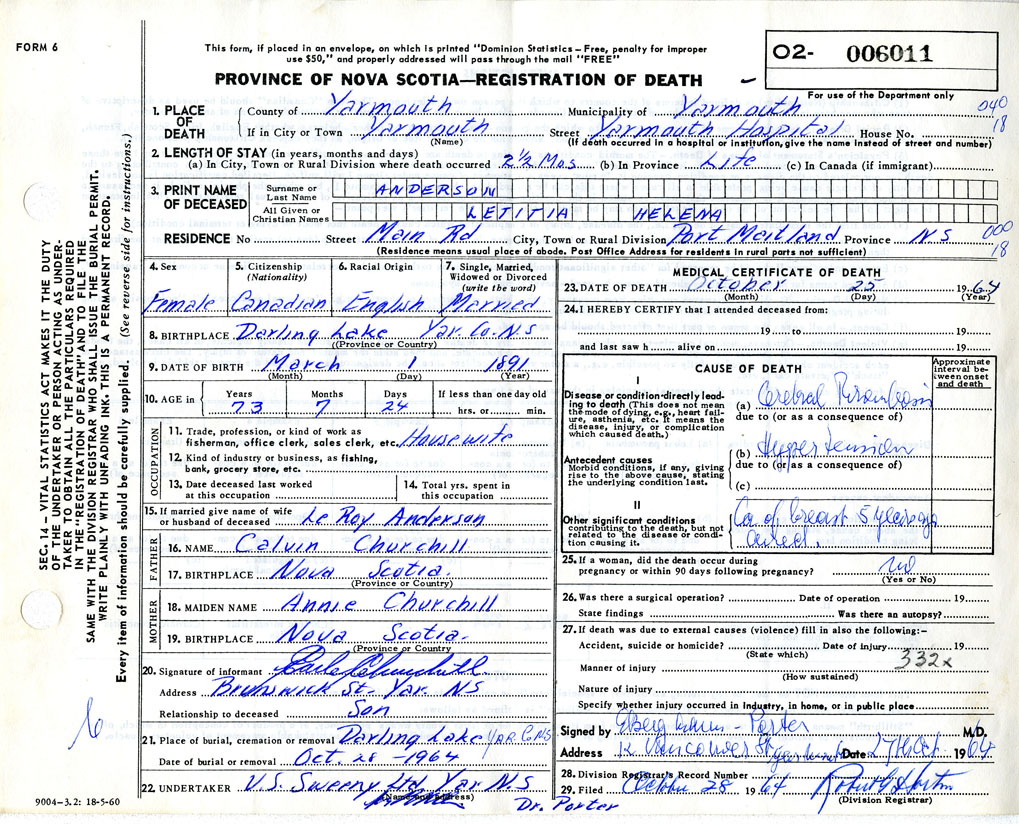 FORM 6
This form, if placed in an envelope, on which is printed "Dominion Statistics – Free, penalty for improper
use $50," and properly addressed will pass through the mail "FREE"
PROVINCE OF NOVA SCOTIA—REGISTRATION OF DEATH
O2- 006011
For use of the Department only
040
18
1. PLACE OF DEATH County of Yarmouth Municipality of Yarmouth
If in City or Town Yarmouth Street Yarmouth Hospital House No.
(Name) (If death occurred in a hospital or institution, give the name instead of street and number)
2. LENGTH OF STAY (in years, months and days)
(a) In City, Town or Rural Division where death occurred 2½ Mos (b) In Province Life (c) In Canada (if immigrant)
3. PRINT NAME OF DECEASED Surname or Last Name ANDERSON
All Given or Christian Names LETITIA HELENA
RESIDENCE No Street Main Rd City, Town or Rural Division Port Maitland Province N S 000
18
(Residence means usual place of abode. Post Office Address for residents in rural parts not sufficient)
4. Sex 5. Citizenship (Nationality) 6. Racial Origin 7. Single, Married, Widowed or Divorced (write the word)
Female Canadian English Married
8. BIRTHPLACE Darling Lake Yar. Co. N S
(Province or Country)
9. DATE OF BIRTH March 1 1891
(Month) (Day) (Year)
10. AGE in Years Months Days If less than one day old
73 7 24 hrs. or min.
OCCUPATION
11. Trade, profession, or kind of work as
fisherman, office clerk, sales clerk, etc. Housewife
12. Kind of industry or business, as fishing,
bank, grocery store, etc.
13. Date deceased last worked
at this occupation
14. Total yrs. spent in
this occupation
15. If married give name of wife
or husband of deceased Le Roy Anderson
FATHER
16. NAME Calvin Churchill
17. BIRTHPLACE Nova Scotia.
(Province or Country)
MOTHER
18. MAIDEN NAME Annie Churchill
19. BIRTHPLACE Nova Scotia.
(Province or Country
20. Signature of informant
Address Brunswick St - Yar. N S
Relationship to deceased Son
21. Place of burial, cremation or removal Darling Lake YAR Co NS
Date of burial or removal Oct. 28 - 1964
22. UNDERTAKER V. S. Sweeny Ltd Yar N. S
(Name and address)
Dr. Porter
MEDICAL CERTIFICATE OF DEATH
23. DATE OF DEATH October 25 1964
(Month) (Day) (Year)
24. I HEREBY CERTIFY that I attended deceased from:
19 to 19
and last saw h alive on 19
CAUSE OF DEATH
Approximate interval between onset and death
I
Disease or condition directly leading to death (This does not mean the mode of dying, e.g., heart failure, asthenia, etc. It means the disease, injury, or complication which caused death.)
(a) Cerebral Thrombosis
due to (or as a consequence of)
Antecedent causes
Morbid conditions, if any, giving rise to the above cause, stating the underlying condition last.
(b) Hypertension
due to (or as a consequence of)
(c)
II
Other significant conditions
contributing to the death, but not related to the disease or condition causing it.
Ca of breast 5 years ago
25. If a woman, did the death occur during
pregnancy or within 90 days following pregnancy? no
(Yes or No)
26. Was there a surgical operation? Date of operation 19
State findings Was there an autopsy?
27. If death was due to external causes (violence) fill in also the following:–
Accident, suicide or homicide? Date of injury 19
(State which) 332x
Manner of injury
(How sustained)
Nature of injury
Specify whether injury occurred in Industry, in home, or in public place
Signed by Porter M.D.
Address Vancouver St Date 27th Oct 1964
28. Division Registrar's Record Number
29. Filed October 28 1964
(Division Registrar)
SEC. 14– VITAL STATISTICS ACT MAKES IT THE DUTY
OF THE UNDERTAKER OR PERSON ACTING AS UNDER-
TAKER TO OBTAIN ALL THE PARTICULARS REQUIRED
IN THE "REGISTRATION OF DEATH" AND TO FILE THE
SAME WITH THE DIVISION REGISTRAR WHO SHALL ISSUE THE BURIAL PERMIT.
WRITE PLAINLY WITH UNFADING INK. THIS IS A PERMANENT RECORD.
Every item of information should be carefully supplied. (See reverse side for instructions.)
6
9004–3.2: 18-5-60